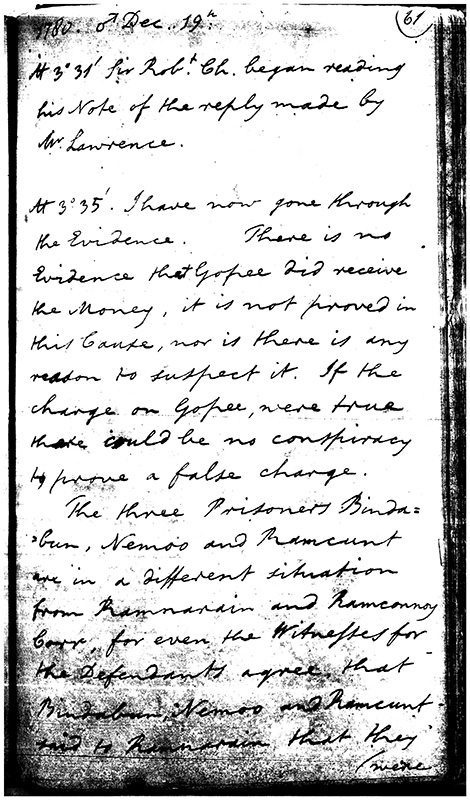 1780. ♂ Dec. 19th. 61
At 3° 31' Sir Robt. Ch. began reading
his Note of the reply made by
Mr. Lawrence.
At 3° 35'. I have now gone through
the Evidence. There is no
Evidence that Gopee did receive
the Money, it is not proved in
this Cause, nor is there is any
reason to suspect it. If the
charge on Gopee, were true
there could be no conspiracy
to prove a false charge.
The three Prisoners Binda=
=bun, Nemoo and Ramcunt
are in a different situation
from Ramnarain and Ramconnoy
Corr, for even the Witnesses for
the Defendants agree, that
Bindabun, Nemoo and Ramcunt
said to Ramnarain that they
(were